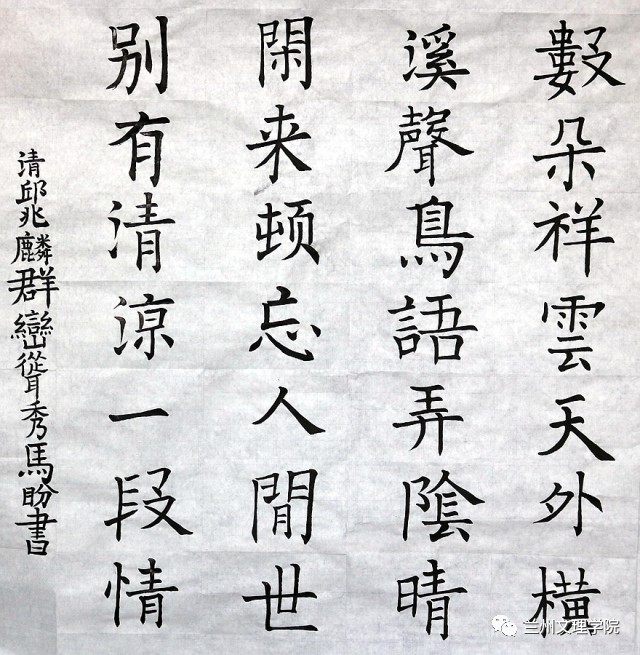 數朵祥雲天外橫
溪聲鳥語弄陰晴
閑来顿忘人間世
别有清涼一段情
清邱兆麟群巒聳秀馬盼書
兰州文理学院